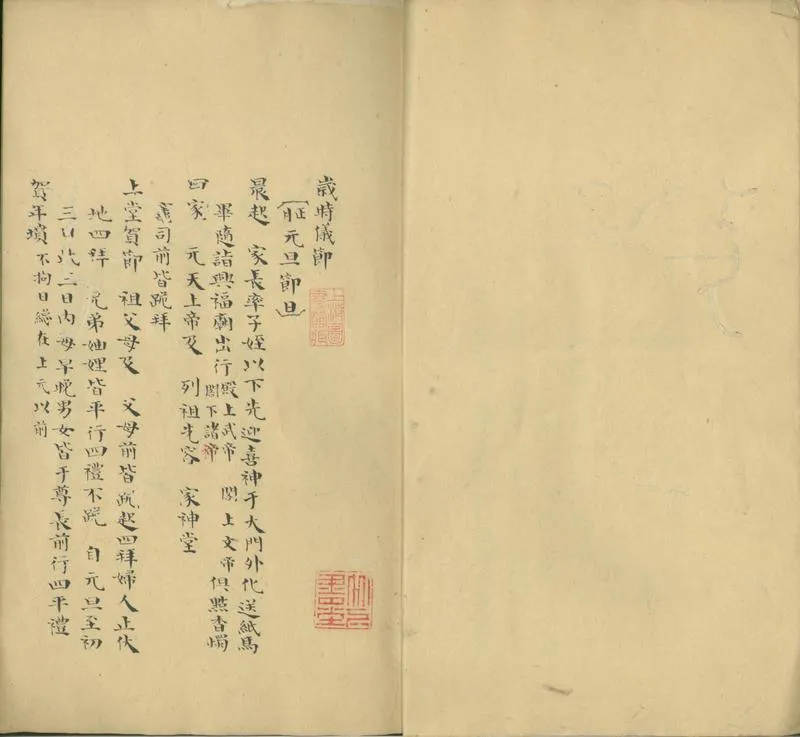 歲時儀節
正月 元旦節旦
晨起 家長率子姪以下先迎喜神于大門外化送紙馬
畢隨詣興福廟出行殿上武帝 閣上文帝 閣下諸帝 俱點香燭
回家 元天上帝及 列祖先容 家神堂
竈司前皆跪拜
上堂賀節 祖父母及 父母前皆跪起四拜婦人止伏
地四拜 兄弟妯娌皆平行四禮不跪 自元旦至初
三日此三日內每早晚男女皆于尊長前行四平禮
賀年墳 不拘日總在上元以前
上海圖書館藏